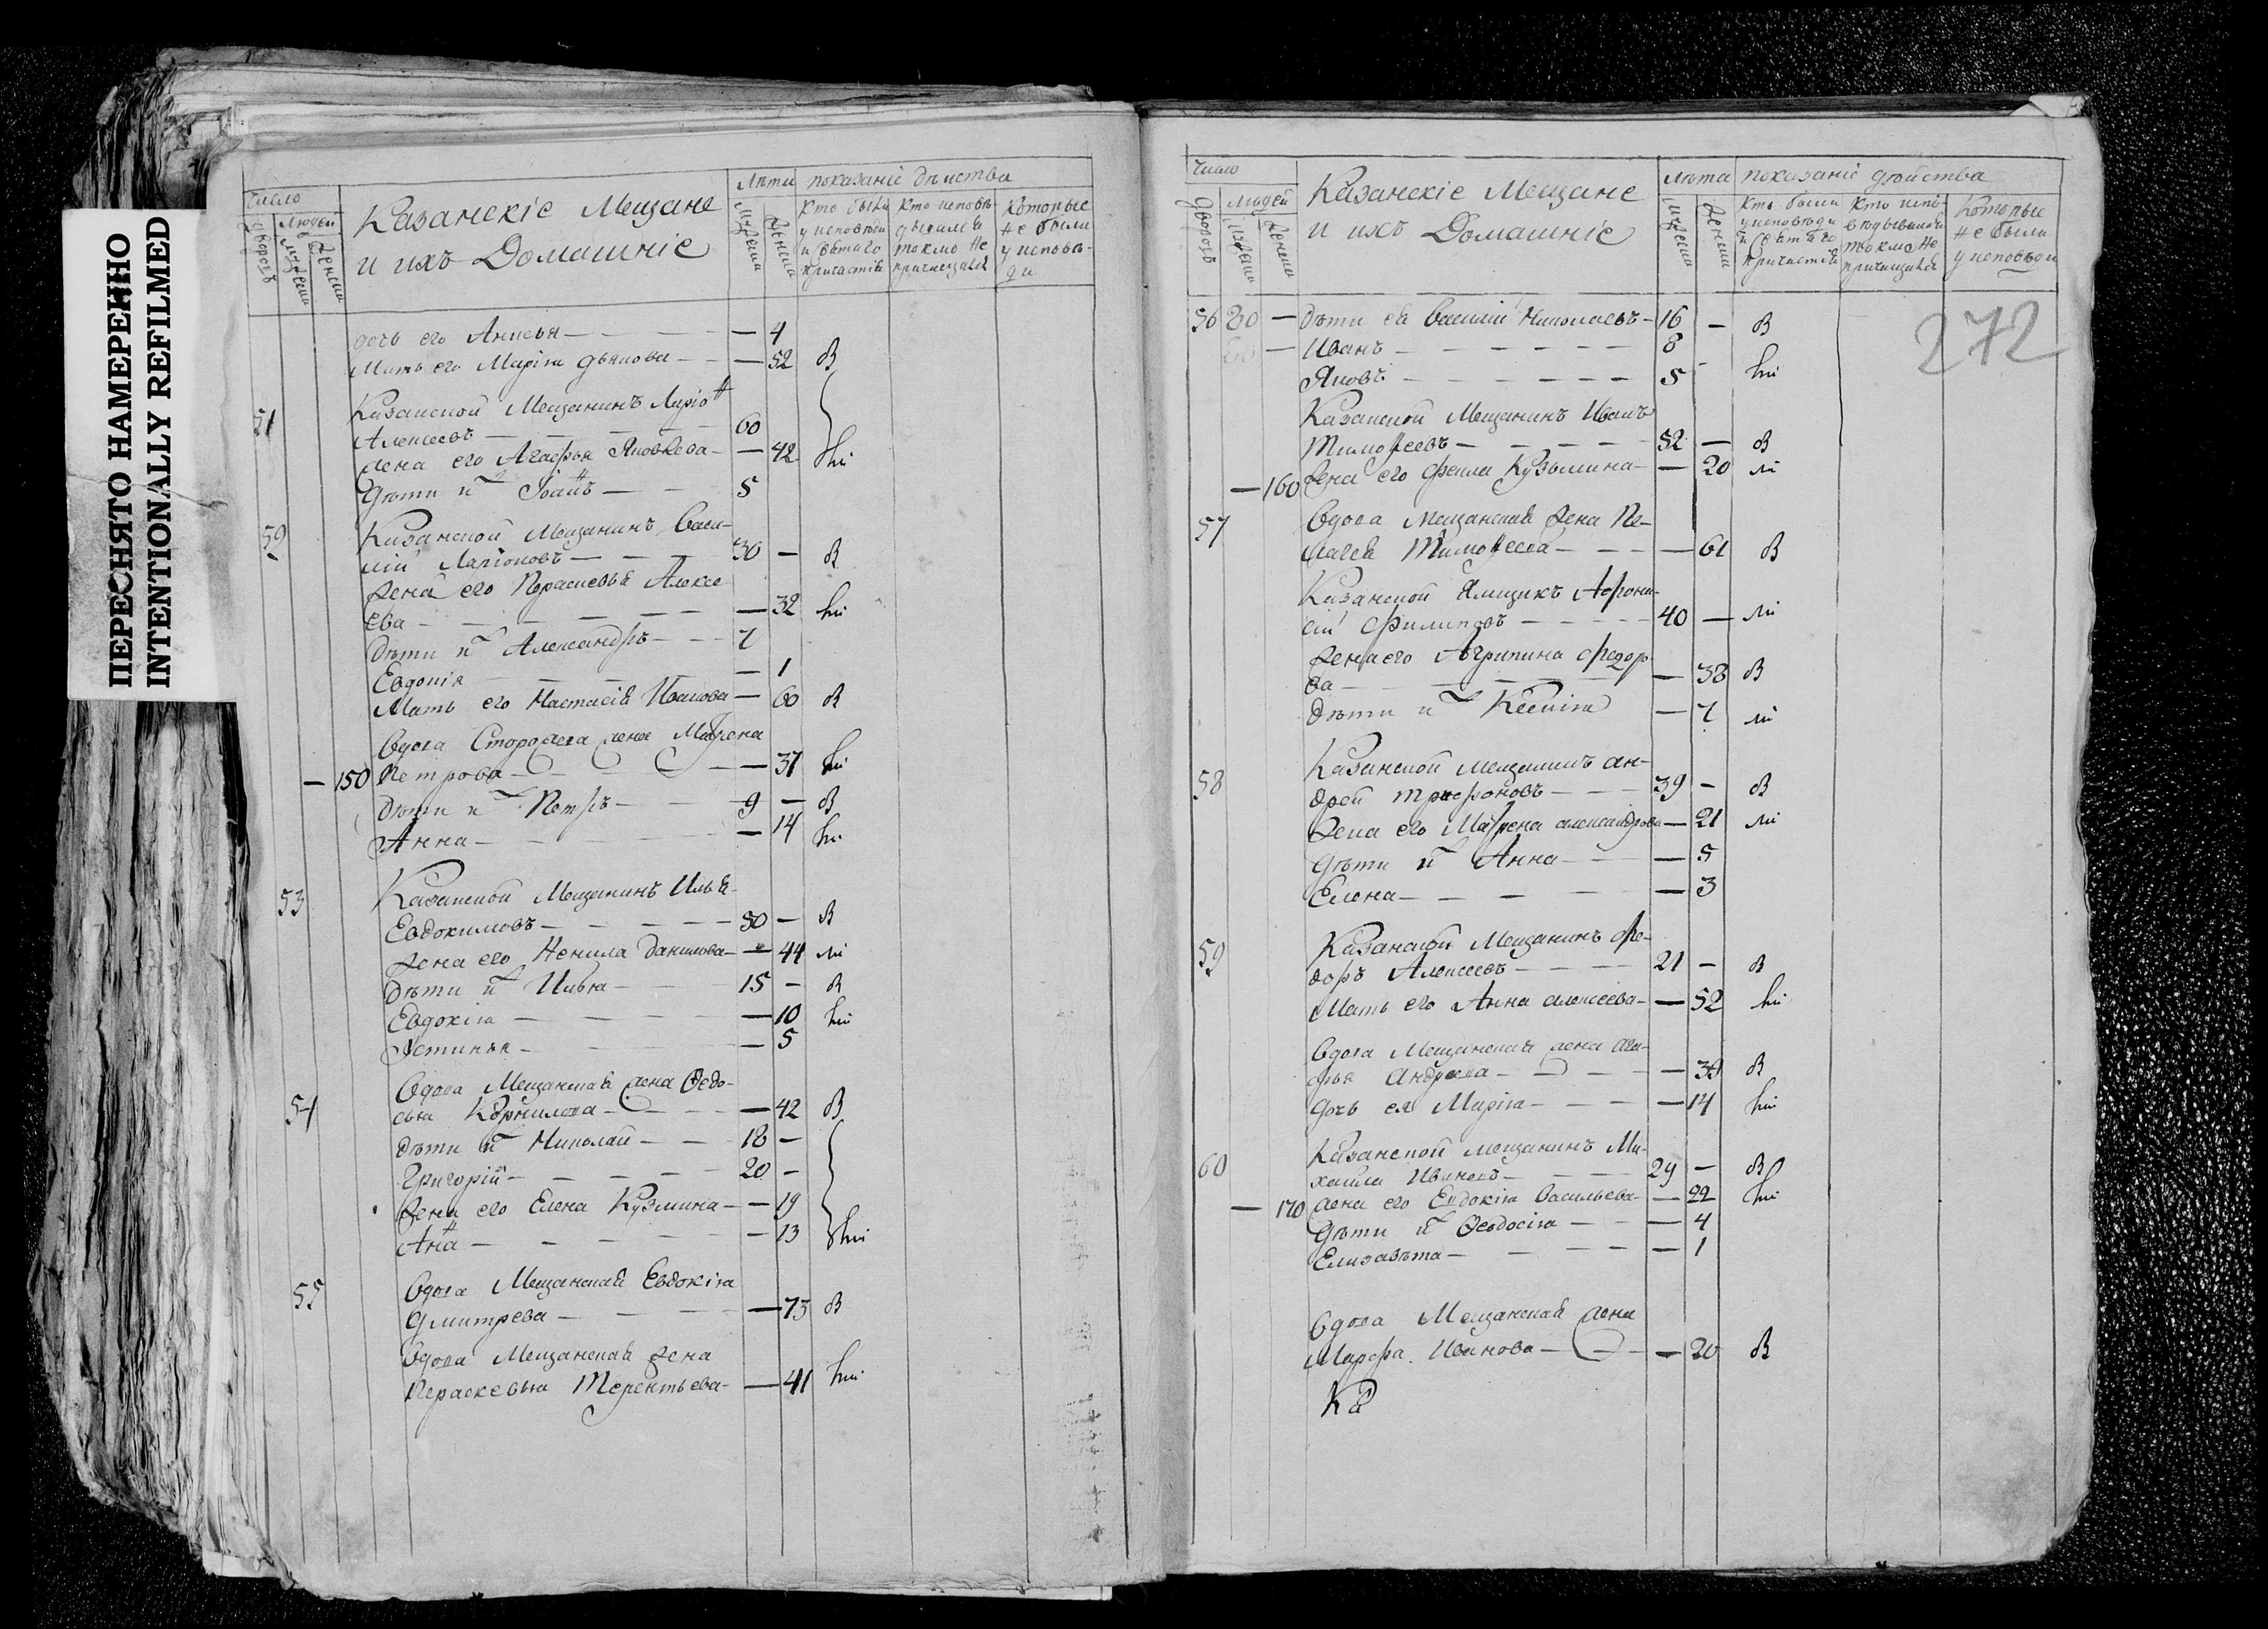 ПЕРЕСНЯТО НАМЕРЕННО
INTENTIONALLY REFILMED
Число
Лѣта показаніе дѣиства
дворовъ
Людей
мужеска
женска
Казанскіе Мещане
и ихъ Домашніе
мужеска
женска
Кто были
у исповѣди
и святаго
причастія
Кто исповѣ-
дывался
токмо не
причащался
Которые
не были
у исповѣ-
ди
дочь его Анисья — — 4
Мать его Маріа Дьянова — — 52 В
51 Казанской Мещанинъ Ларіонъ
Алексеевъ — 60
жена его Агафья Яковлева — — 42 ни
Дѣти ихъ Іванъ — 5
52 Казанской Мещанинъ Васи-
лій Ларіоновъ — 30 — В
жена его Параскевья Алексе
ева — — 32 ни
дѣти ихъ Александръ — 7
Евдокія — — 1
Мать его Настасія Иванова — 60 В
Вдова Сторожева жена Матрена
— 150 Петрова — — 37 ни
дѣти ихъ Петръ — 9 — В
Анна — — 14 ни
53 Казанской Мещанинъ Илья
Евдокимовъ — 50 — В
жена его Ненила Данилова — — 44 ни
дѣти ихъ Илья — 15 — В
Евдокіа — — 10 ни
Устинья — — 5
54 Вдова Мещанская жена Ѳедо-
сья Корнилова — — 42 В
дѣти ихъ Николай — 18 —
Григорій — 20 —
жена его Елена Кузмина — — 19
Анна — — 13 ни
55 Вдова Мещанская Евдокіа
Дмитрева — — 73 В
Вдова Мещанская жена
Параскевья Терентьева — — 41 ни
Число
Лѣта показаніе дѣйства
дворовъ
Людей
мужеска
женска
Казанскіе Мещане
и ихъ Домашніе
мужеска
женска
Кто были
у исповѣди
и святаго
причастія
Кто испо-
вѣдывался
токмо не
причащался
Которые
не были
у исповѣди
272
56 — дѣти ея Василій Николаевъ — 16 — В
— Иванъ — 8
Яковъ — 5 ни
Казанской Мещанинъ Иванъ
Тимоѳеевъ — 52 — В
— 160 жена его Фекла Кузьмина — — 20 ни
57 Вдова Мещанская жена Пе-
лагея Тимоѳеева — — 61 В
Казанской Ямщикъ Афона-
сій Филиповъ — 40 — ни
жена его Агрипина Федоро-
ва — — 38 В
дѣти ихъ Ксеніа — 7 ни
58 Казанской мещанинъ Ан-
дрей Трифоновъ — 39 — В
жена его Матрена Александрова — 21 ни
дѣти ихъ Анна — — 5
Елена — — 3
59 Казанской Мещанинъ Фе-
доръ Алексеевъ — 21 — В
Мать его Анна Алексеева — — 52 ни
Вдова Мещанская жена Ага-
фья Андреева — — 39 В
Дочь ея Маріа — — 14 ни
60 Казанской мещанинъ Ми-
хаила Ивановъ — 29 — В
— 170 жена его Евдокіа Васильева — — 22 ни
Дѣти ихъ Ѳеодосіа — — 4
Елизавѣта — — 1
Вдова Мещанская жена
Марфа Иванова — — 20 В
Ка